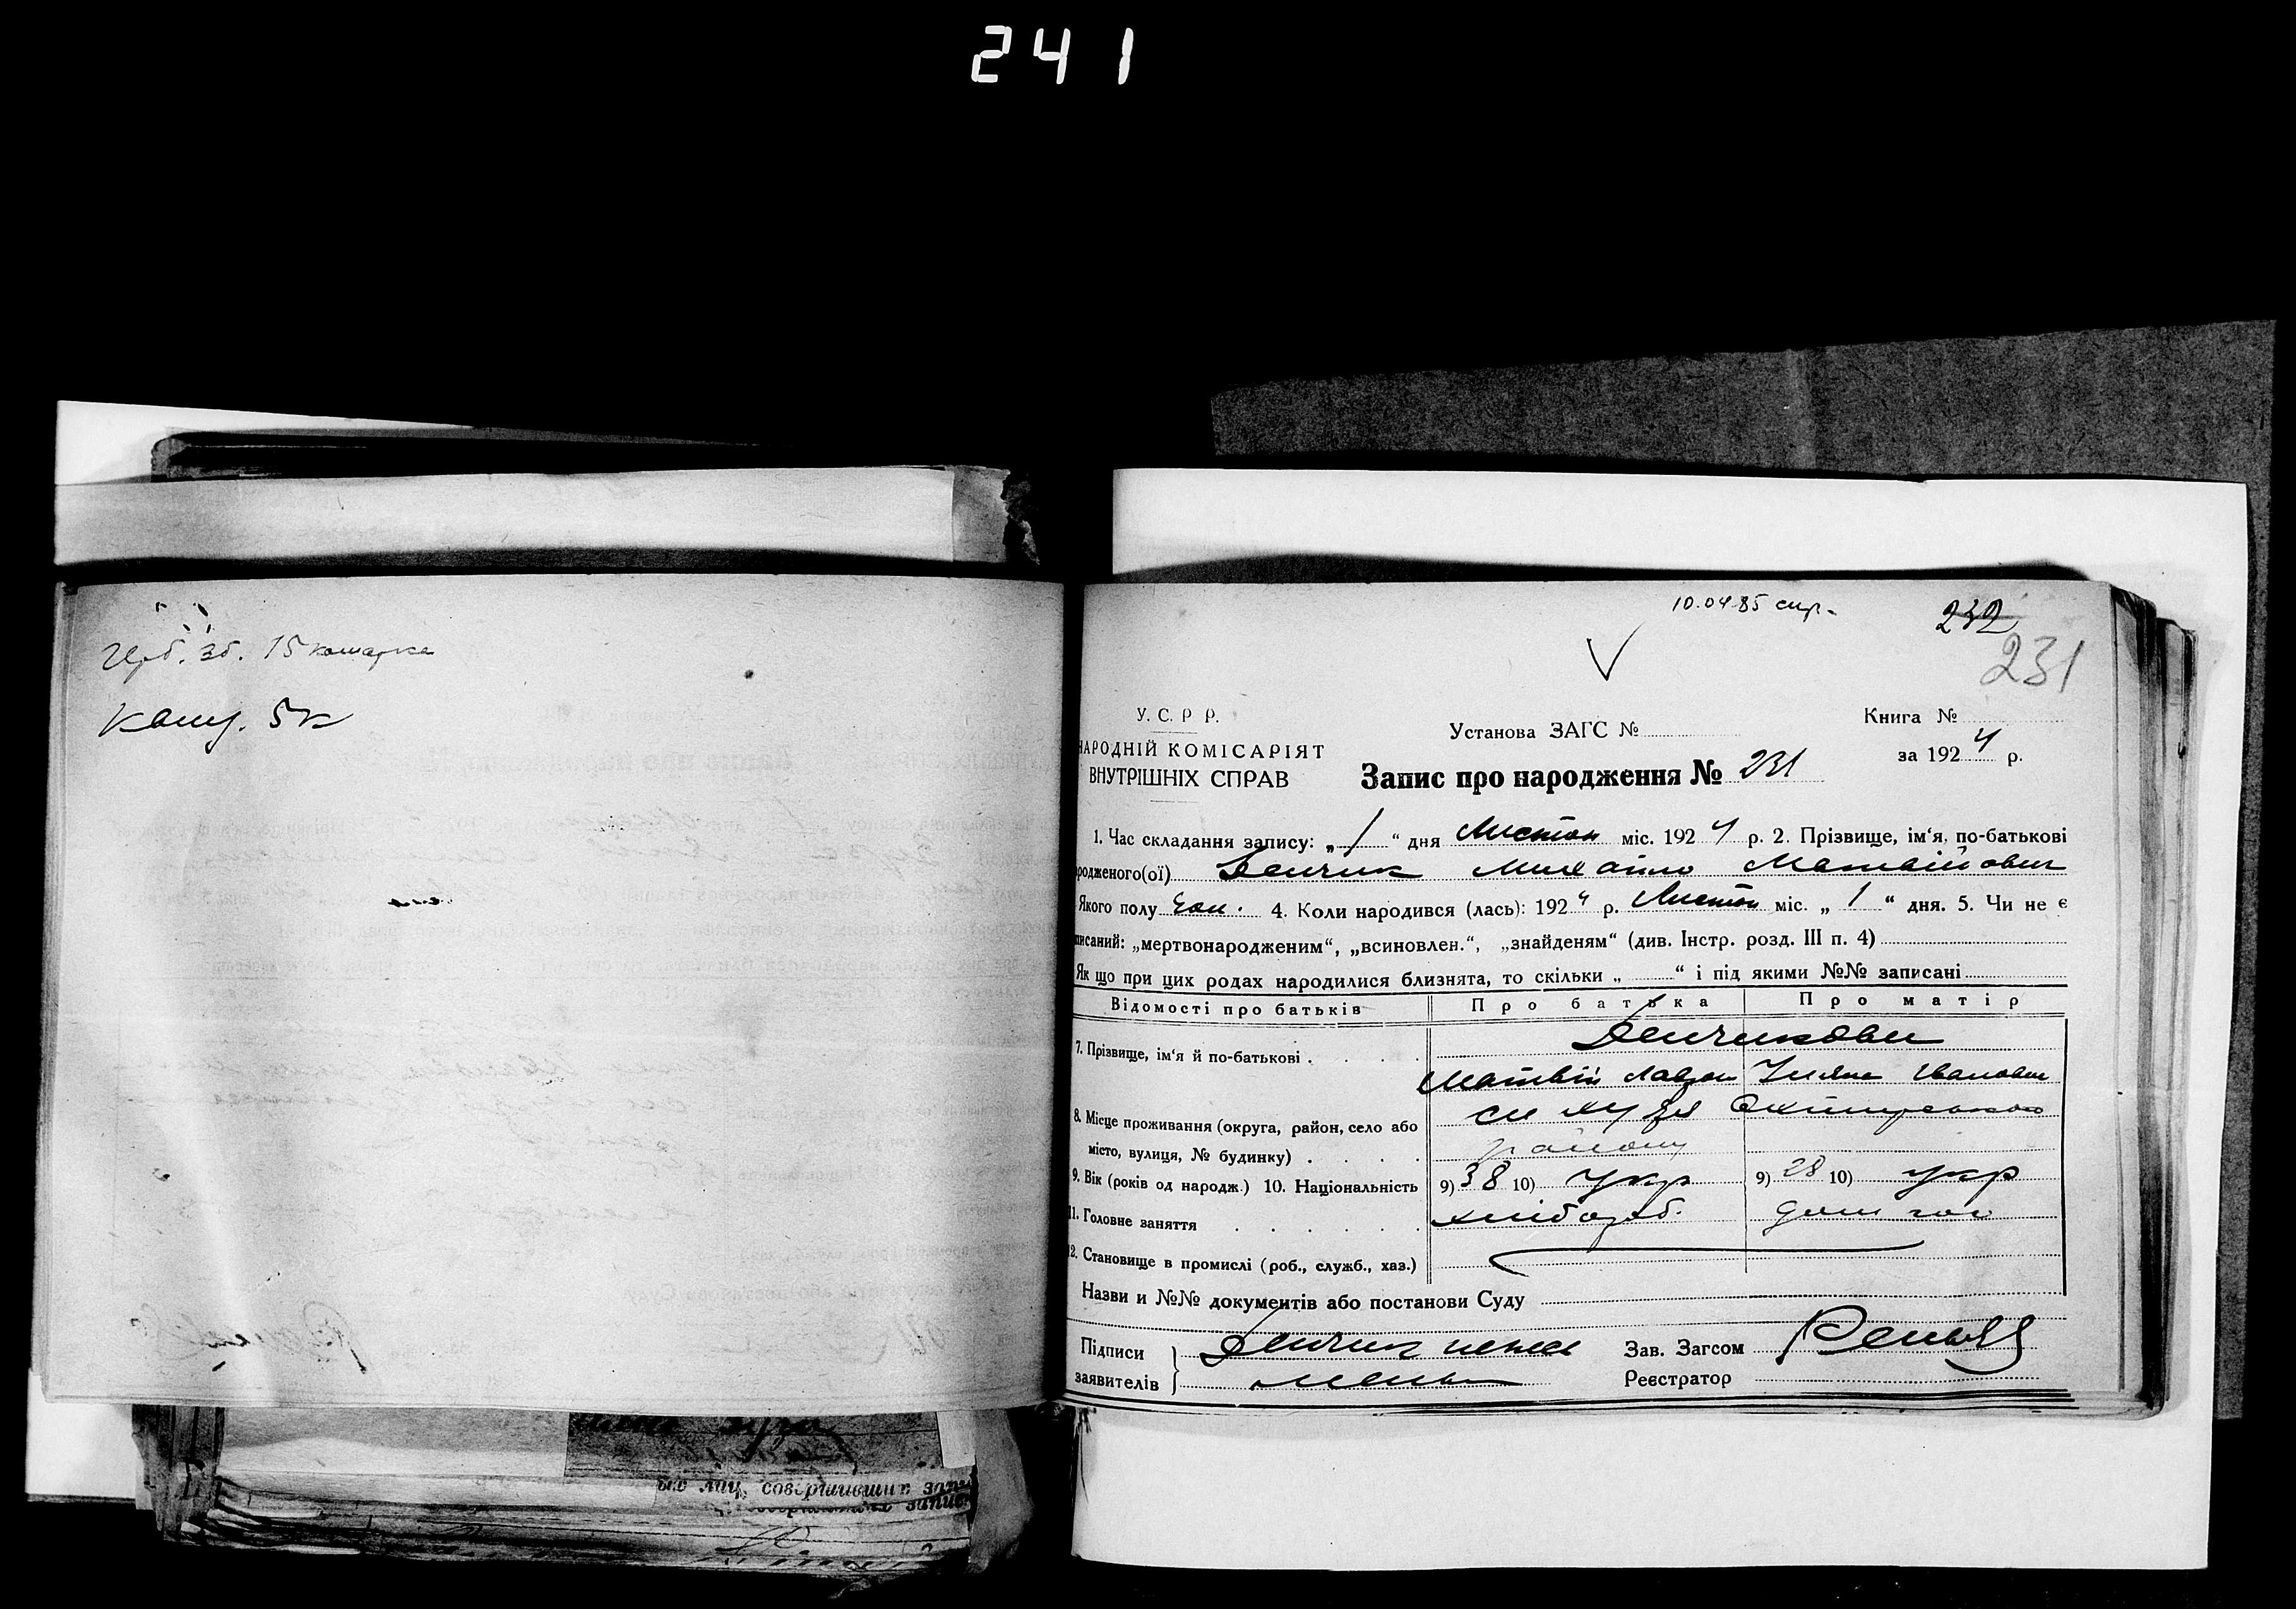 241
Герб. зб. 15
Канц. 5к
10.04.85
232
231
У. С. Р Р.
НАРОДНІЙ КОМІСАРІЯТ
ВНУТРІШНІХ СПРАВ
Установа ЗАГС №
Книга №
за 1924 р.
Запис про народження № 231
1. Час складання запису: „1“ дня Листоп міс. 1924 р. 2. Прізвище, ім‘я, по-батькові
родженого(ої) Демчик Михайло Матвійович
Якого полу Чол. 4. Коли народився (лась): 1924 р. Листоп міс. „1“ дня. 5. Чи не є
писаний: „мертвонародженим“, „всиновлен.“, „знайденям“ (див. Інстр. розд. III п. 4)
Як що при цих родах народилися близнята, то скільки „ “ і під якими №№ записані
Відомості про батьків Про батька Про матір
7. Прізвище, ім‘я й по-батькові Демчикови
Матвій Лавров Уляна Іванова
8. Місце проживання (округа, район, село або Охтирського
місто, вулиця, № будинку) району
9. Вік (років од народж.) 10. Національність 9) 38 10) Укр 9) 28 10) Укр
11. Головне заняття хлібороб. дом гос
12. Становище в промислі (роб., служб., хаз.)
Назви и №№ документів або постанови Суду
Підписи Демчик Зав. Загсом
заявителів Реєстратор
совершивших запи